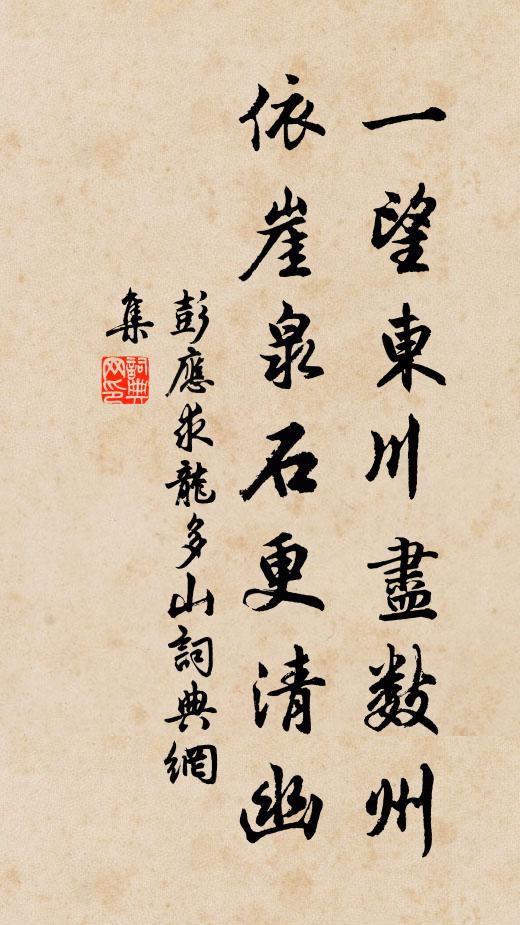 一望東川盡數州
依崖泉石更清幽
彭應求龍多山詞典網
集
詞典
网印